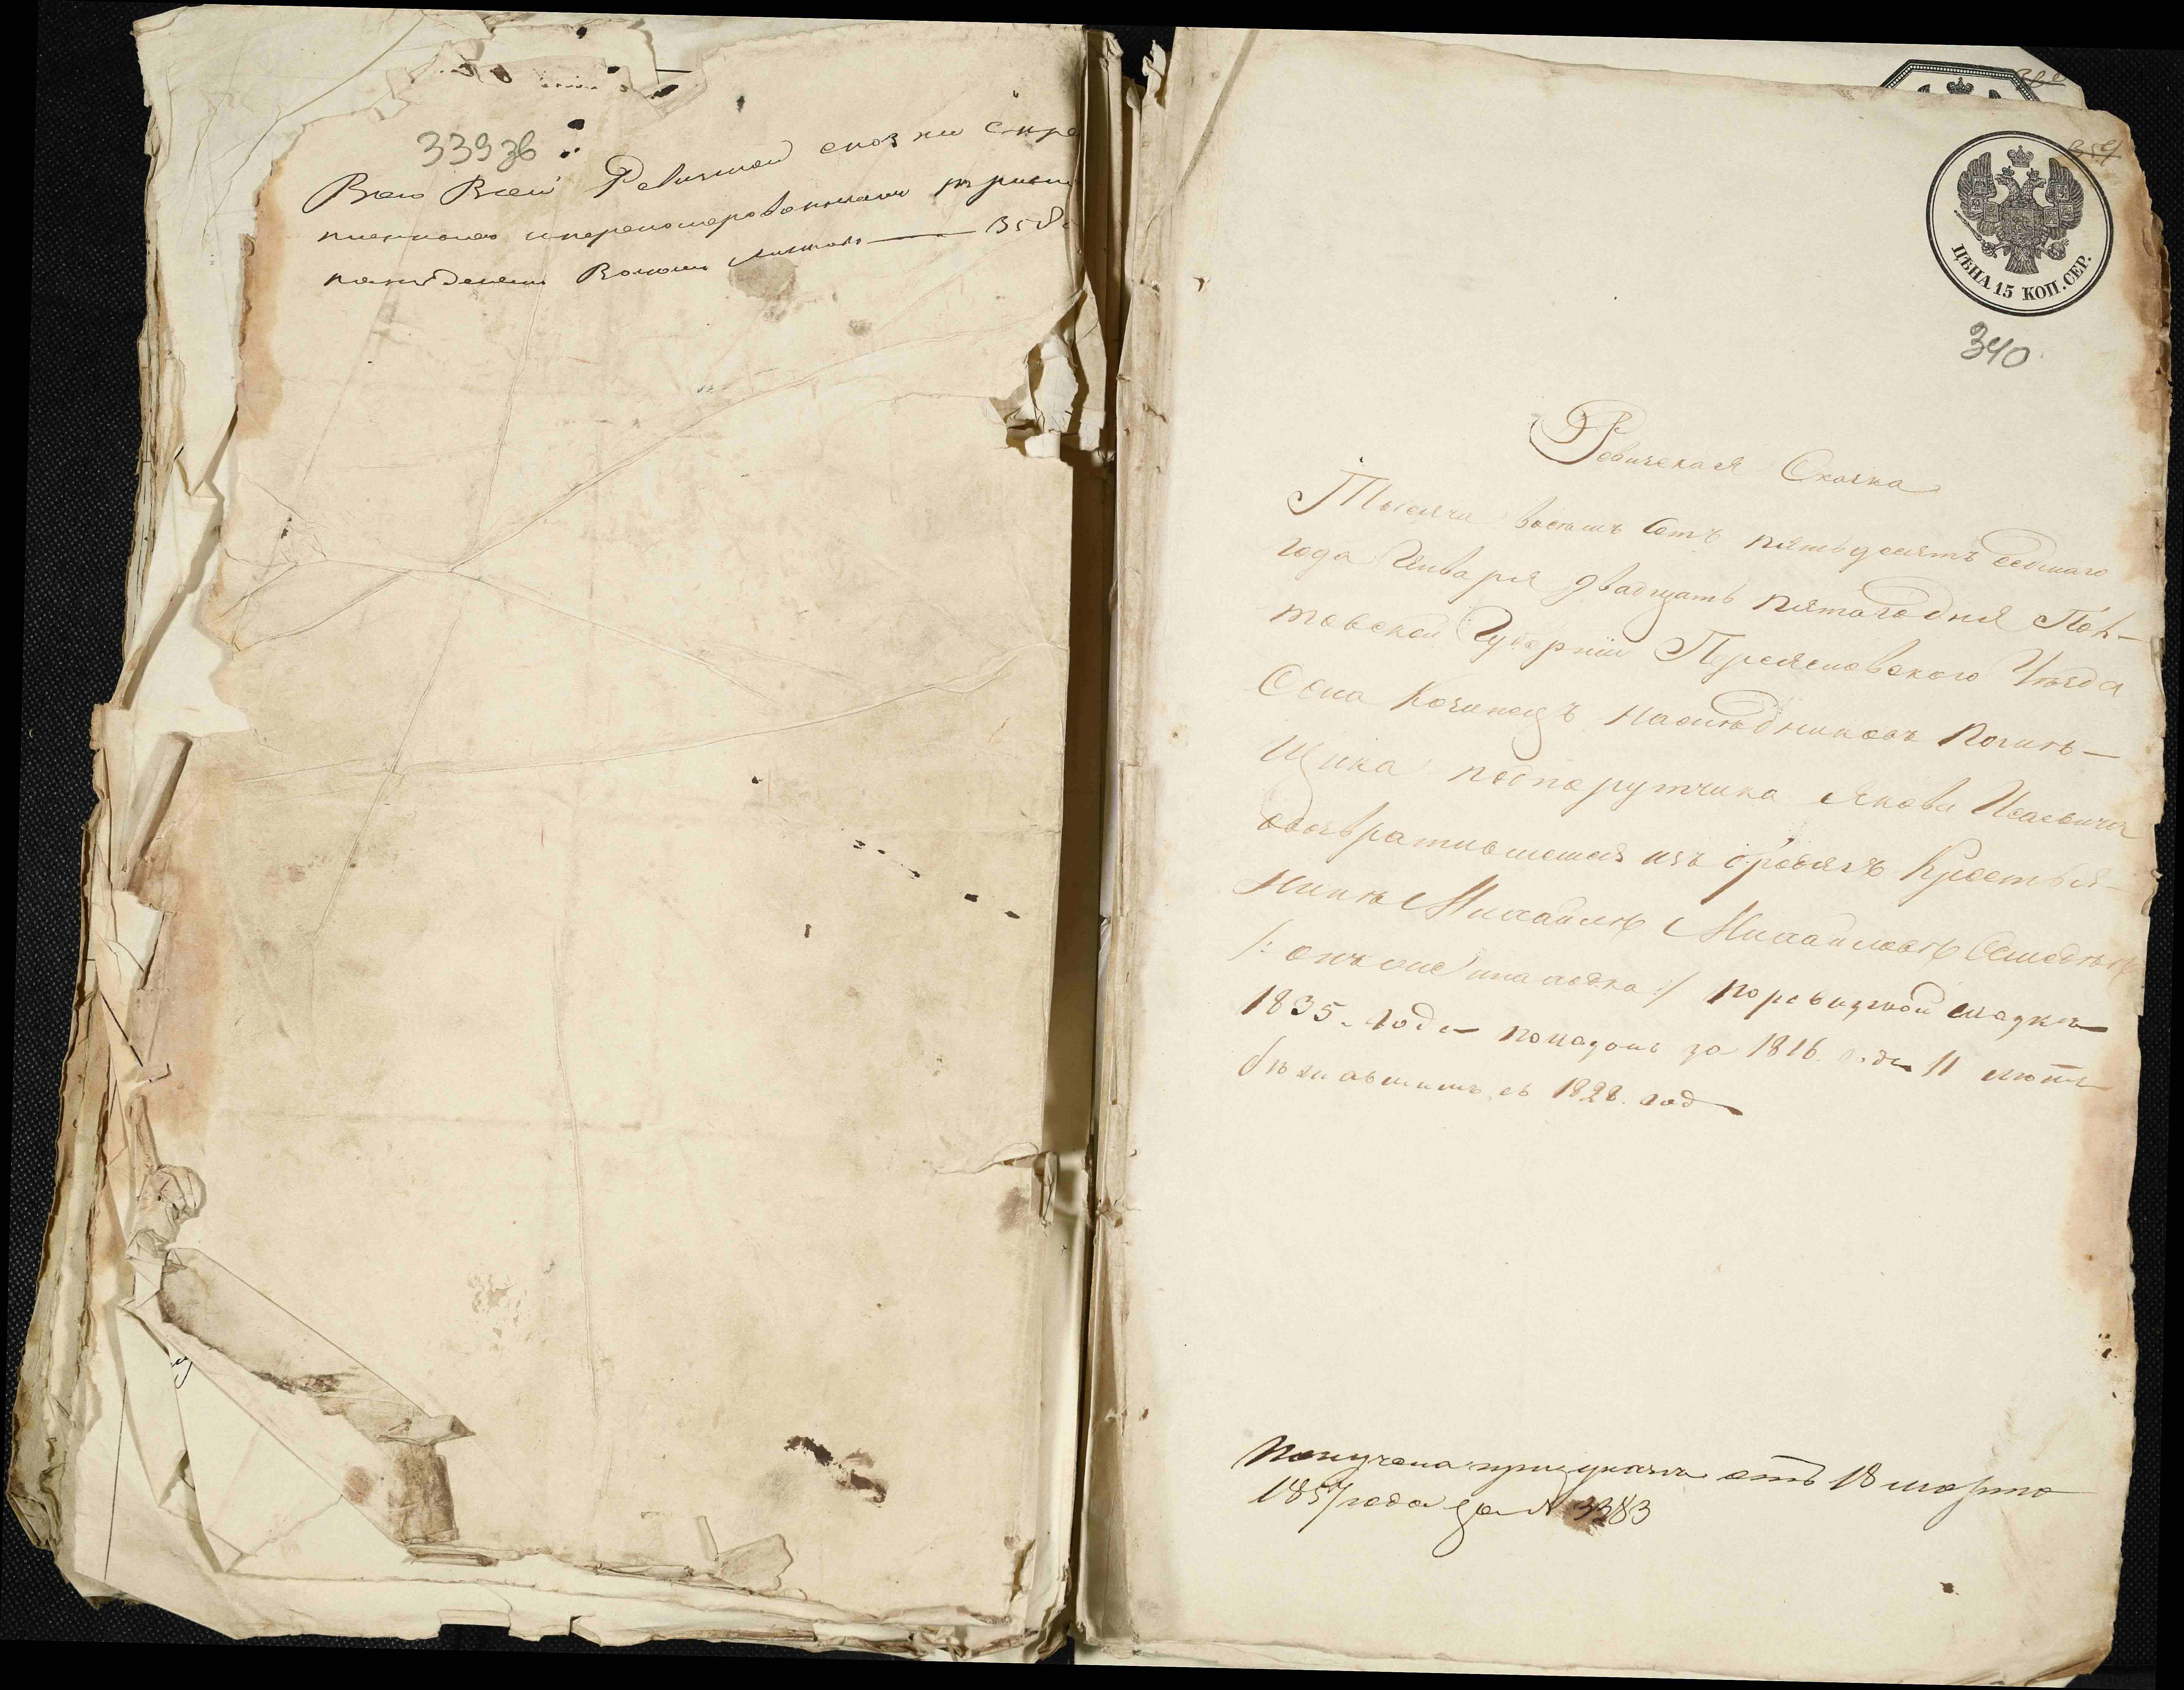 339 зв
Всего Всей Ревизской сказки скре
пленных и переномерованными триста
пятьдесят Восемь Листовъ — 358.
ЦѢНА 15 КОП. СЕР.
340
Ревизская Сказка
Тысяча восемь сотъ пятьдесятъ седмаго
года Января двадцать пятаго дня Пол-
тавской Губернии Переяславского Уѣзда
Села наслѣдниковъ помѣ-
щика подпорутчика Якова Исаевича
возвратившемся изъ бѣговъ Крестья-
нинѣ Михайлѣ Михайловѣ
/: :/ по ревизской сказкѣ
1835. года показанъ за 1816. года 11 лѣтъ
бѣжавшимъ въ 1828. год
Получена при указѣ отъ 18 марта
1857 года за № 3383